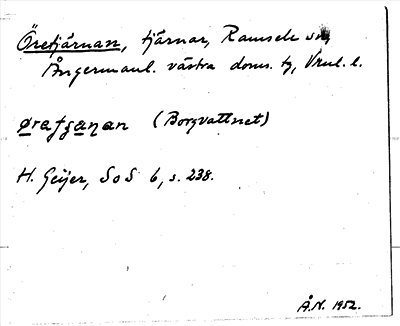 Öretjärnan, tjärnar, Ramsele sn,
Ångermanl. västra doms. tg, Vnl. l.
øretʃæŋan (Borgvattnet)
H. Geijer, SoS 6, s. 238.
Å.N. 1952.